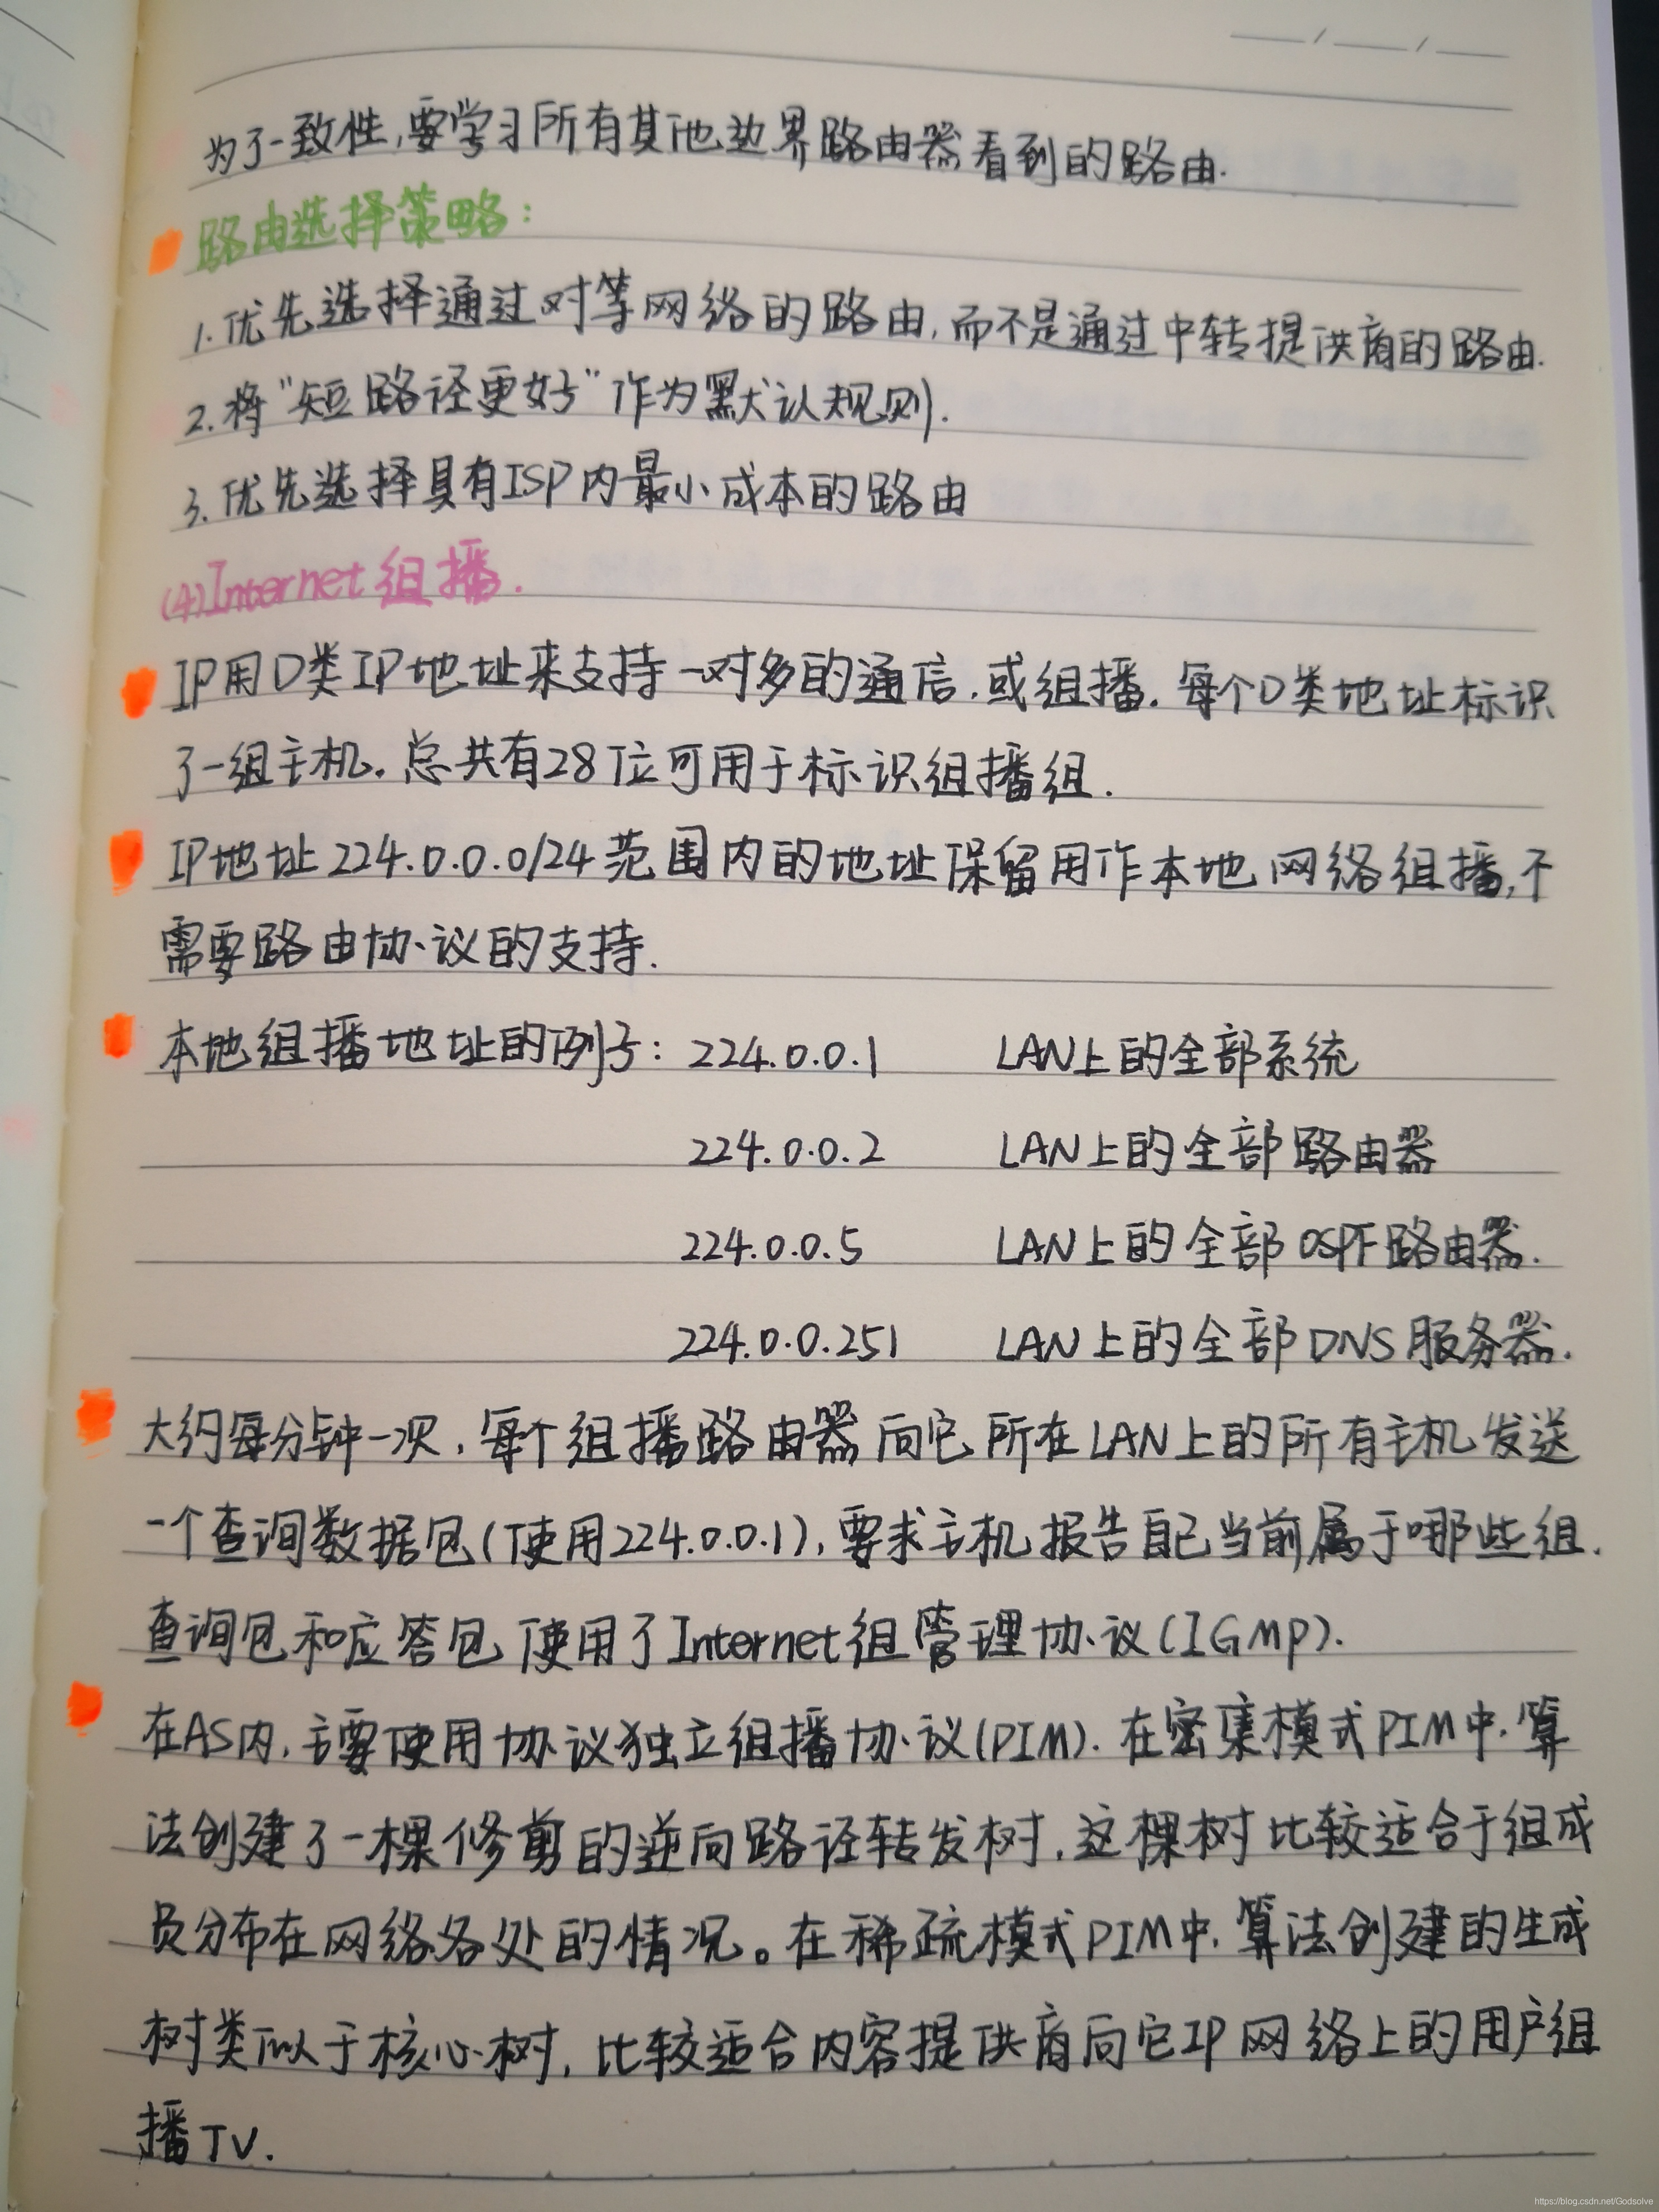 为了一致性,要学习所有其他边界路由器看到的路由.
路由选择策略:
1.优先选择通过对等网络的路由,而不是通过中转提供商的路由.
2.将"短路径更好"作为默认规则.
3.优先选择具有ISP内最小成本的路由
(4)Internet组播.
IP用D类IP地址来支持一对多的通信,或组播.每个D类地址标识
了一组主机。总共有28位可用于标识组播组.
IP地址224.0.0.0/24范围内的地址保留用作本地网络组播,不
需要路由协议的支持.
本地组播地址的例子: 224.0.0.1 LAN上的全部系统
224.0.0.2 LAN上的全部路由器
224.0.0.5 LAN上的全部OSPF路由器.
224.0.0.251 LAN上的全部DNS服务器.
大约每分钟一次,每个组播路由器向它所在LAN上的所有主机发送
一个查询数据包(使用224.0.0.1),要求主机报告自己当前属于哪些组.
查询包和应答包使用了Internet组管理协议(IGMP).
在AS内,主要使用协议独立组播协议(PIM).在密集模式PIM中,算
法创建了一棵修剪的逆向路径转发树,这棵树比较适合于组成
员分布在网络各处的情况。在稀疏模式PIM中,算法创建的生成
树类似于核心树,比较适合内容提供商向它IP网络上的用户组
播TV.
https://blog.csdn.net/Godsolve